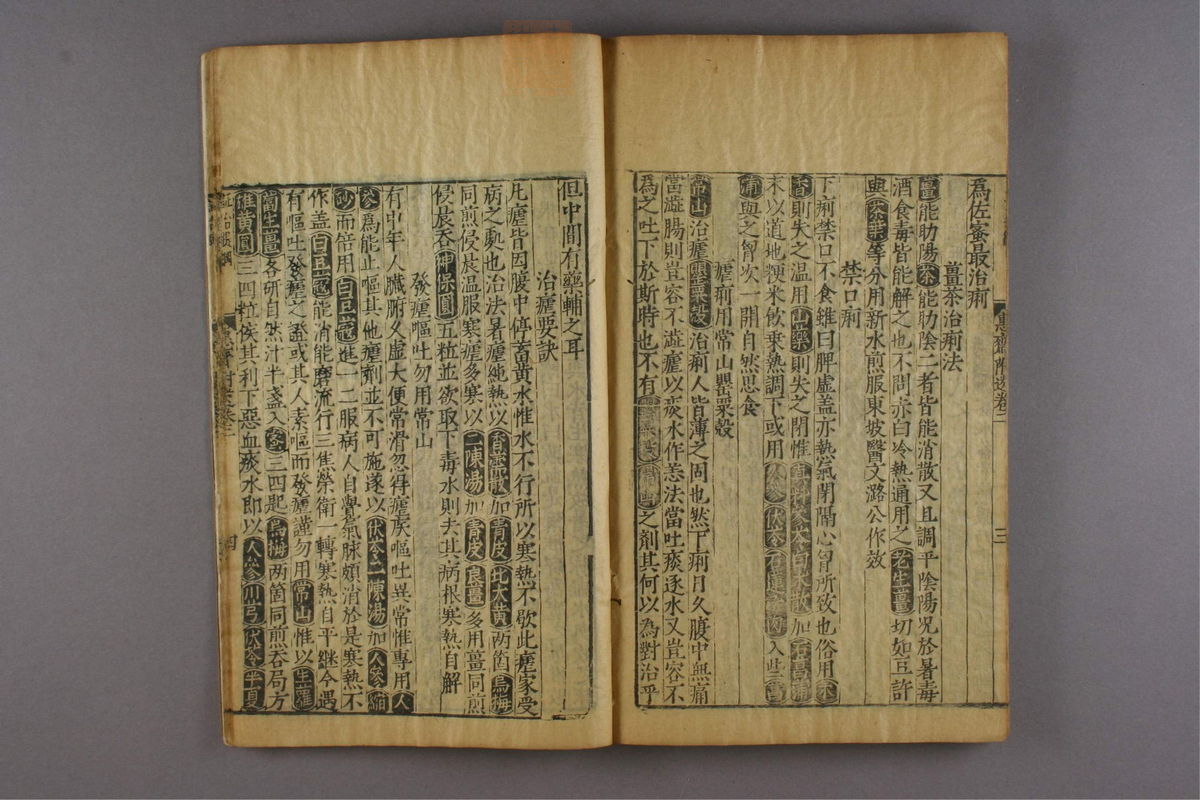 為佐蜜最治痢
薑茶治痢法
薑能助陽茶能助陰二者皆能消散又且調平陰陽况於暑毒
酒食毒皆能解之也不問赤白冷熱通用之老生薑切如豆許
與茶葉等分用新水煎服東坡醫文潞公作效
禁口痢
下痢禁口不食雖曰脾虛盖亦熱氣閉隔心胷所致也俗用木
香則失之温用山藥則失之閉惟參苓白朮散加石菖蒲
末以道地粳米飲乗熱調下或用人參伏苓石蓮肉入些菖
蒲與之胷次一開自然思食
瘧痢用常山罌粟殼
常山治瘧罌粟殼治痢人皆薄之固也然下痢日久腹中無痛
當澁腸則豈容不澁瘧以痰水作恙法當吐痰逐水又豈容不
為之吐下於斯時也不有罌粟殼常山之劑其何以為對治乎
三
但中間有藥輔之耳
治瘧要訣
凡瘧皆因腹中停蓄黄水惟水不行所以寒熱不歇此瘧家受
病之奥也治法暑瘧純熱以香薷散加青皮北大黄两箇烏梅
同煎侵晨温服寒瘧多寒以二陳湯加青皮良薑多用薑同煎
侵晨吞神保圓五粒並欲取下毒水則去其病根寒熱自解
發瘧嘔吐勿用常山
有中年人臟腑久虛大便常滑忽得瘧疾嘔吐異常惟專用人
參為能止嘔其他瘧劑並不可施遂以伏苓二陳湯加人參縮
砂而倍用白豆蔻進一二服病人自覺氣脉頗消於是寒熱不
作盖白豆蔻能消能磨流行三焦榮衛一轉寒熱自平繼今遇
有嘔吐發瘧之證或其人素嘔而發瘧謹勿用常山惟以生蘿
蔔生薑各研自然汁半盞入蜜三四匙烏梅两箇同煎吞局方
雄黄圓三四粒候其利下惡血痰水即以人參川芎伏苓半夏
四